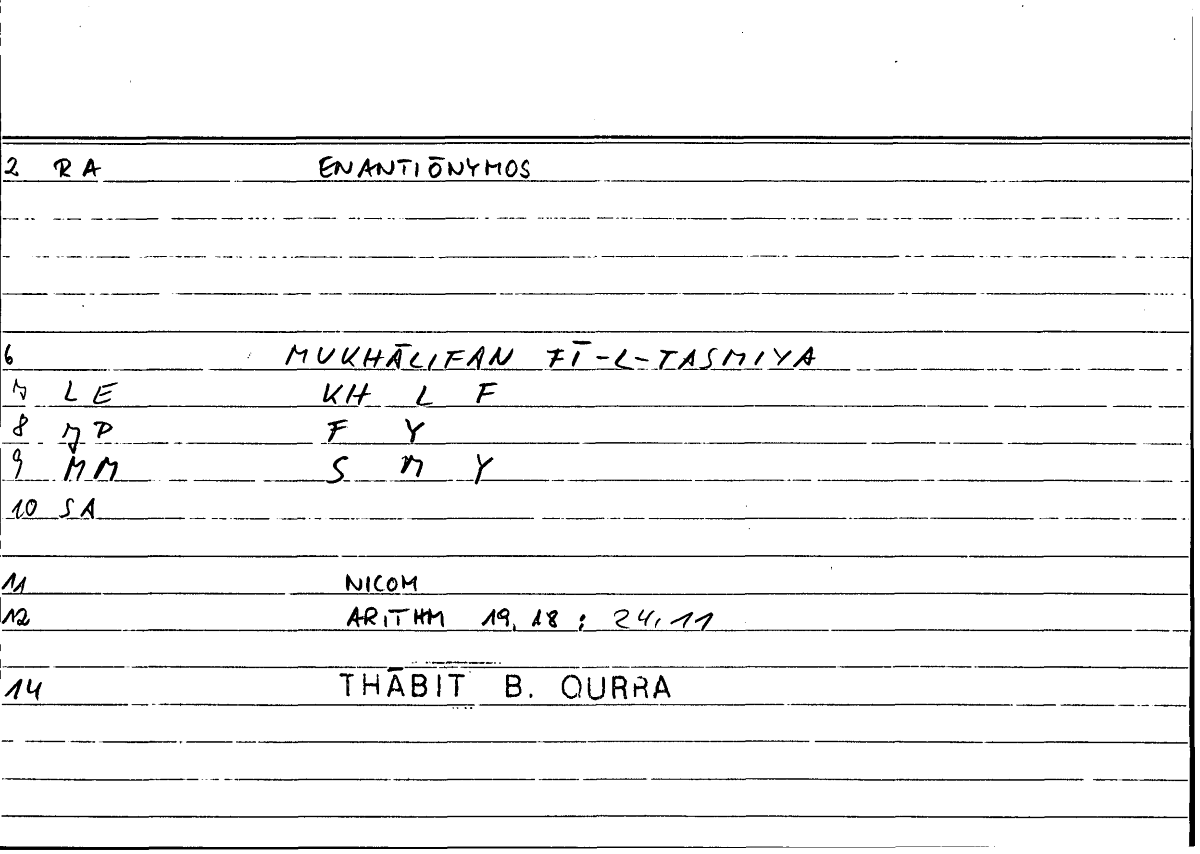 2 RA ENANTIŌNYMOS
6 MUKHĀLIFAN FĪ-L-TASMIYA
7 LE KH L F
8 JP F Y
9 MM S M Y
10 SA
11 NICOM
12 ARITHM 19,18 : 24,11
14 THĀBIT B. QURRA